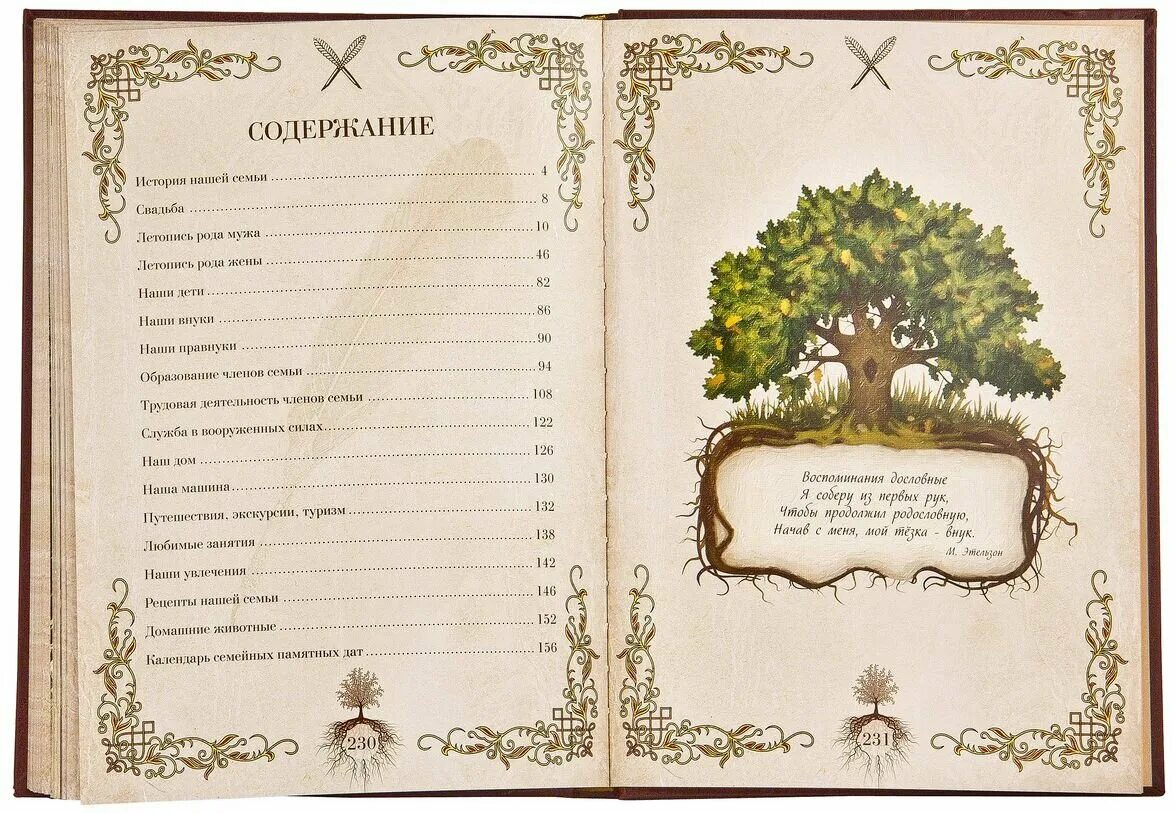 СОДЕРЖАНИЕ
История нашей семьи ........................................ 4
Свадьба ........................................ 8
Летопись рода мужа ........................................ 10
Летопись рода жены ........................................ 46
Наши дети ........................................ 82
Наши внуки ........................................ 86
Наши правнуки ........................................ 90
Образование членов семьи ........................................ 94
Трудовая деятельность членов семьи ........................................ 108
Служба в вооруженных силах ........................................ 122
Наш дом ........................................ 126
Наша машина ........................................ 130
Путешествия, экскурсии, туризм ........................................ 132
Любимые занятия ........................................ 138
Наши увлечения ........................................ 142
Рецепты нашей семьи ........................................ 146
Домашние животные ........................................ 152
Календарь семейных памятных дат ........................................ 156
230
Воспоминания дословные
Я соберу из первых рук,
Чтобы продолжил родословную,
Начав с меня, мой тёзка - внук.
М. Этельзон
231